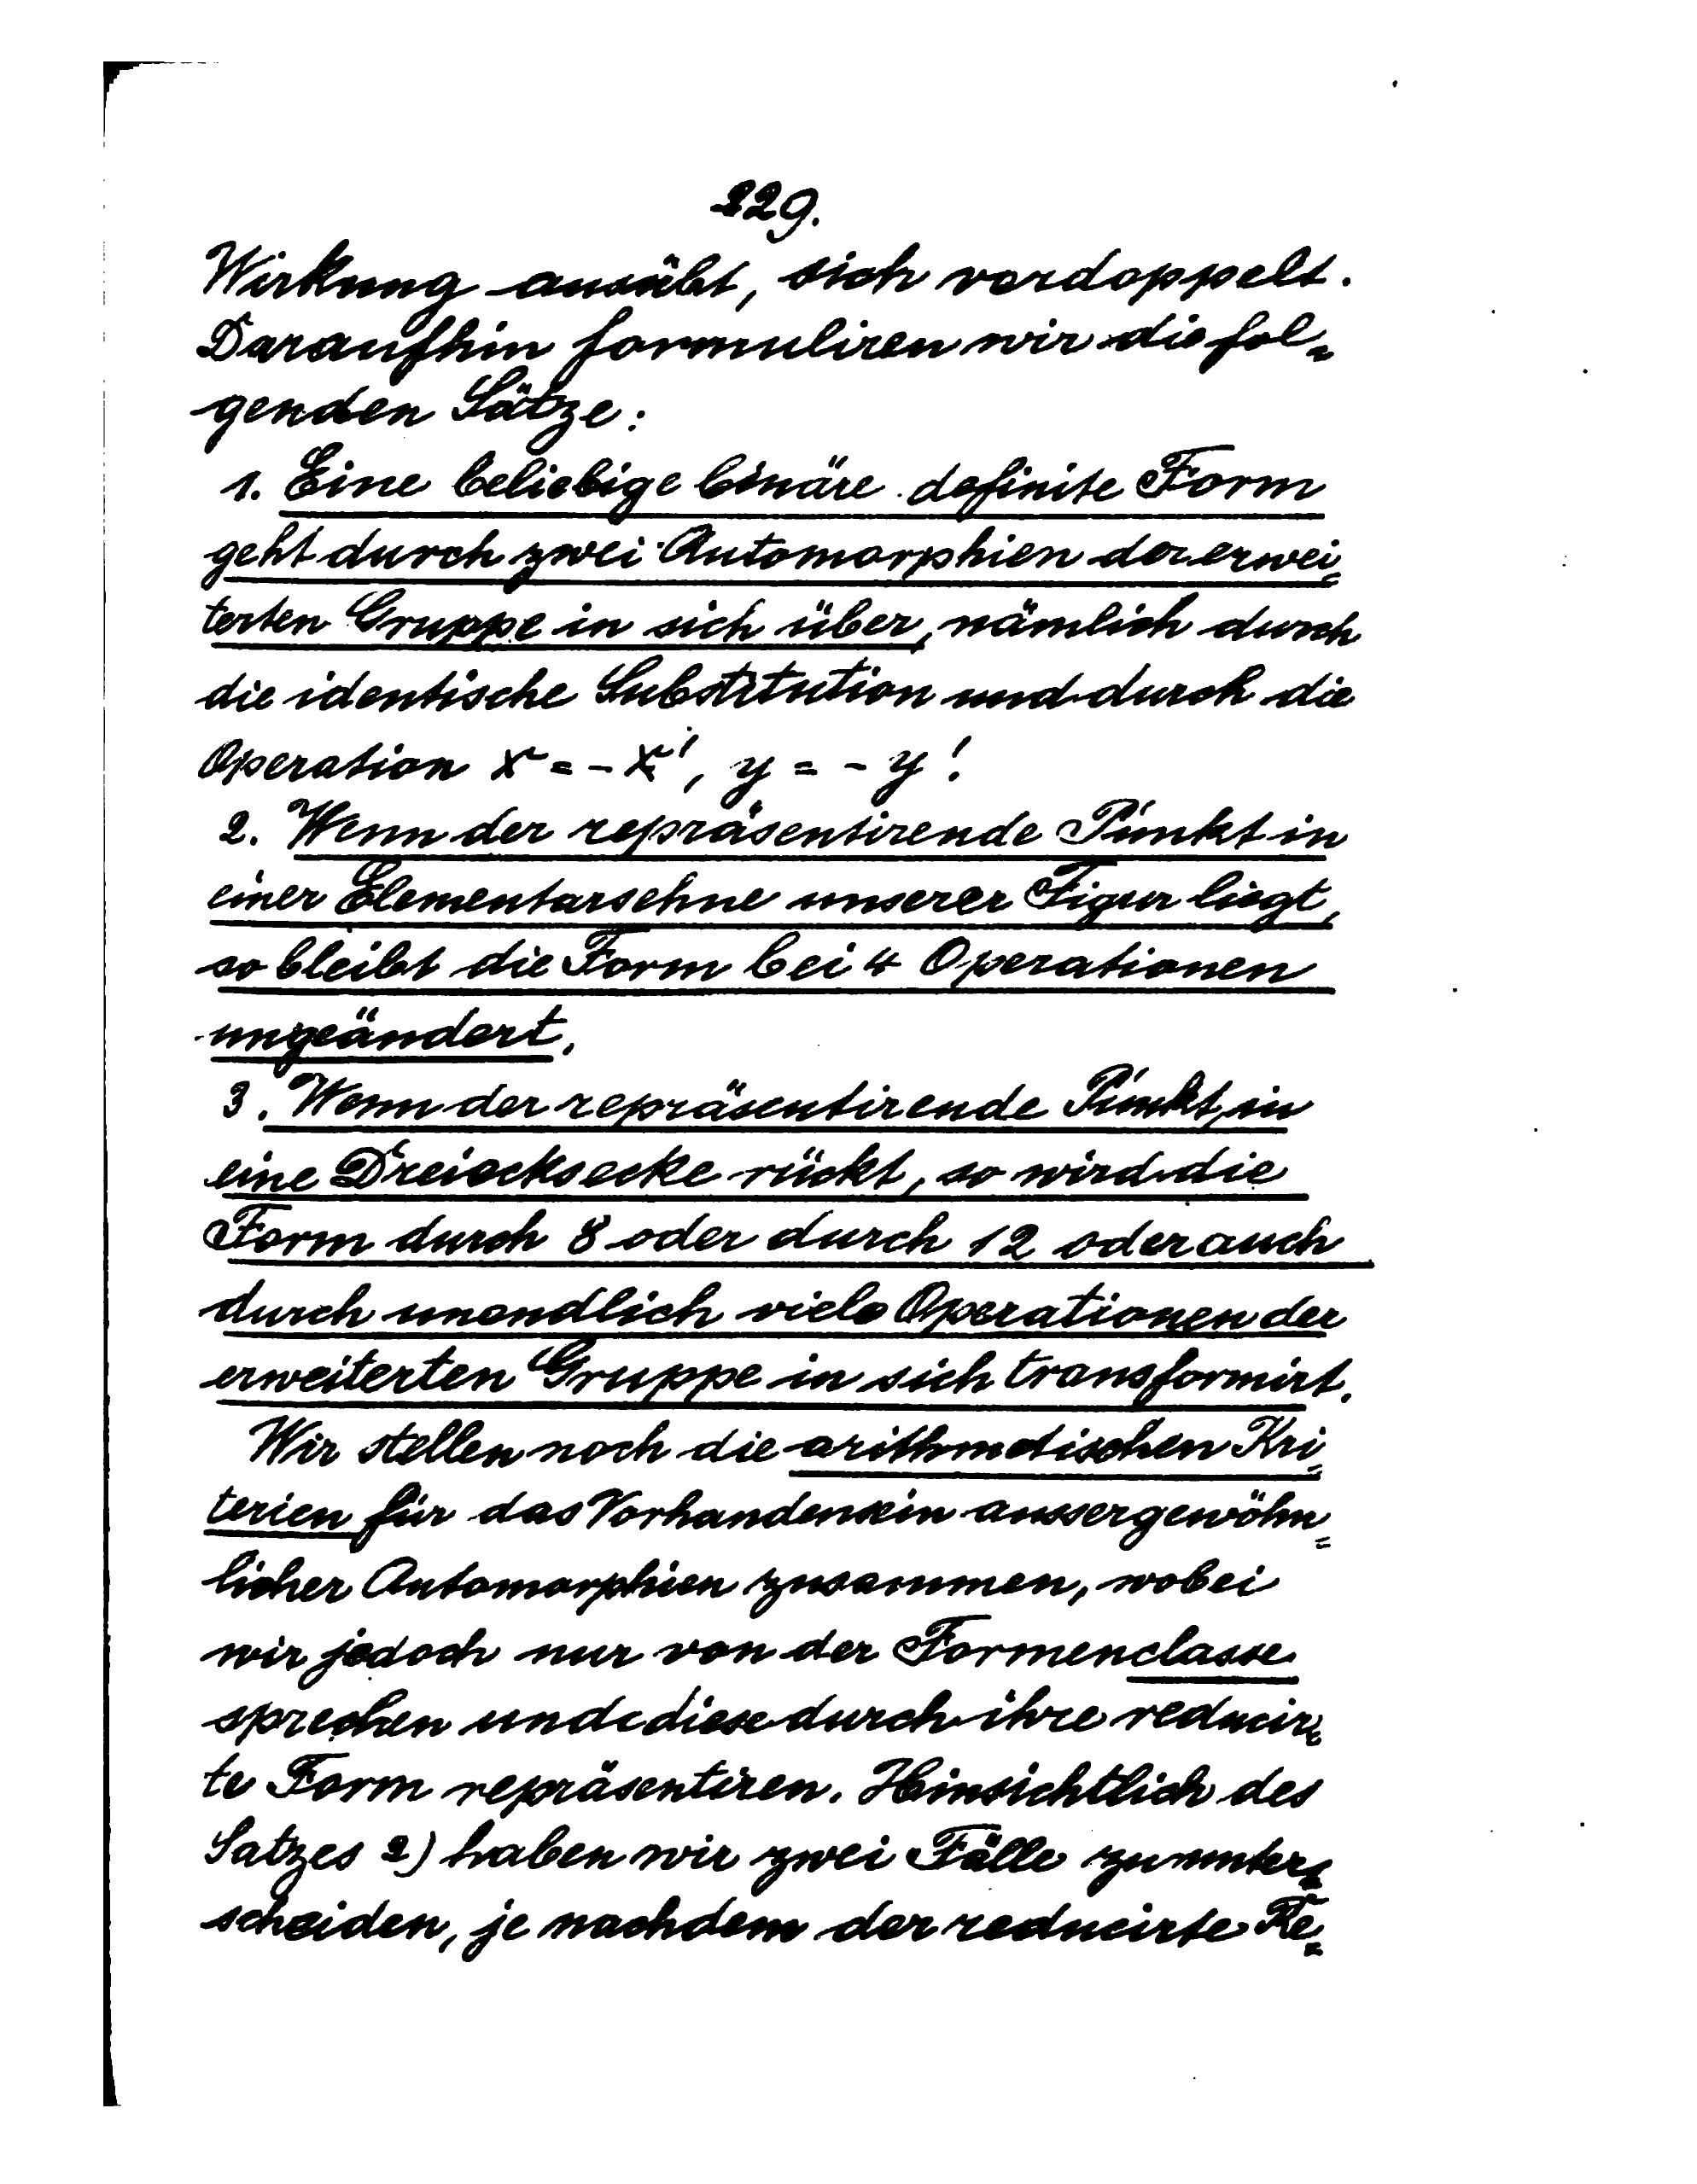 229.
Wirkung ausübt, sich verdoppelt.
Daraufhin formuliren wir die fol=
genden Sätze:
1. Eine beliebige binäre definite Form
geht durch zwei Automorphien der erwei=
terten Gruppe in sich über, nämlich durch
die identische Substitution und durch die
Operation x = - x', y = - y'.
2. Wenn der repräsentirende Punkt in
einer Elementarsehne unserer Figur liegt,
so bleibt die Form bei 4 Operationen
ungeändert.
3. Wenn der repräsentirende Punkt in
eine Dreiecksecke rückt, so wird die
Form durch 8 oder durch 12 oder auch
durch unendlich viele Operationen der
erweiterten Gruppe in sich transformirt.
Wir stellen noch die arithmetischen Kri=
terien für das Vorhandensein aussergewöhn=
licher Automorphien zusammen, wobei
wir jedoch nur von der Formenclasse
sprechen und diese durch ihre reducir=
te Form repräsentiren. Hinsichtlich des
Satzes 2) haben wir zwei Fälle zu unter=
scheiden, je nachdem der reducirte Re=